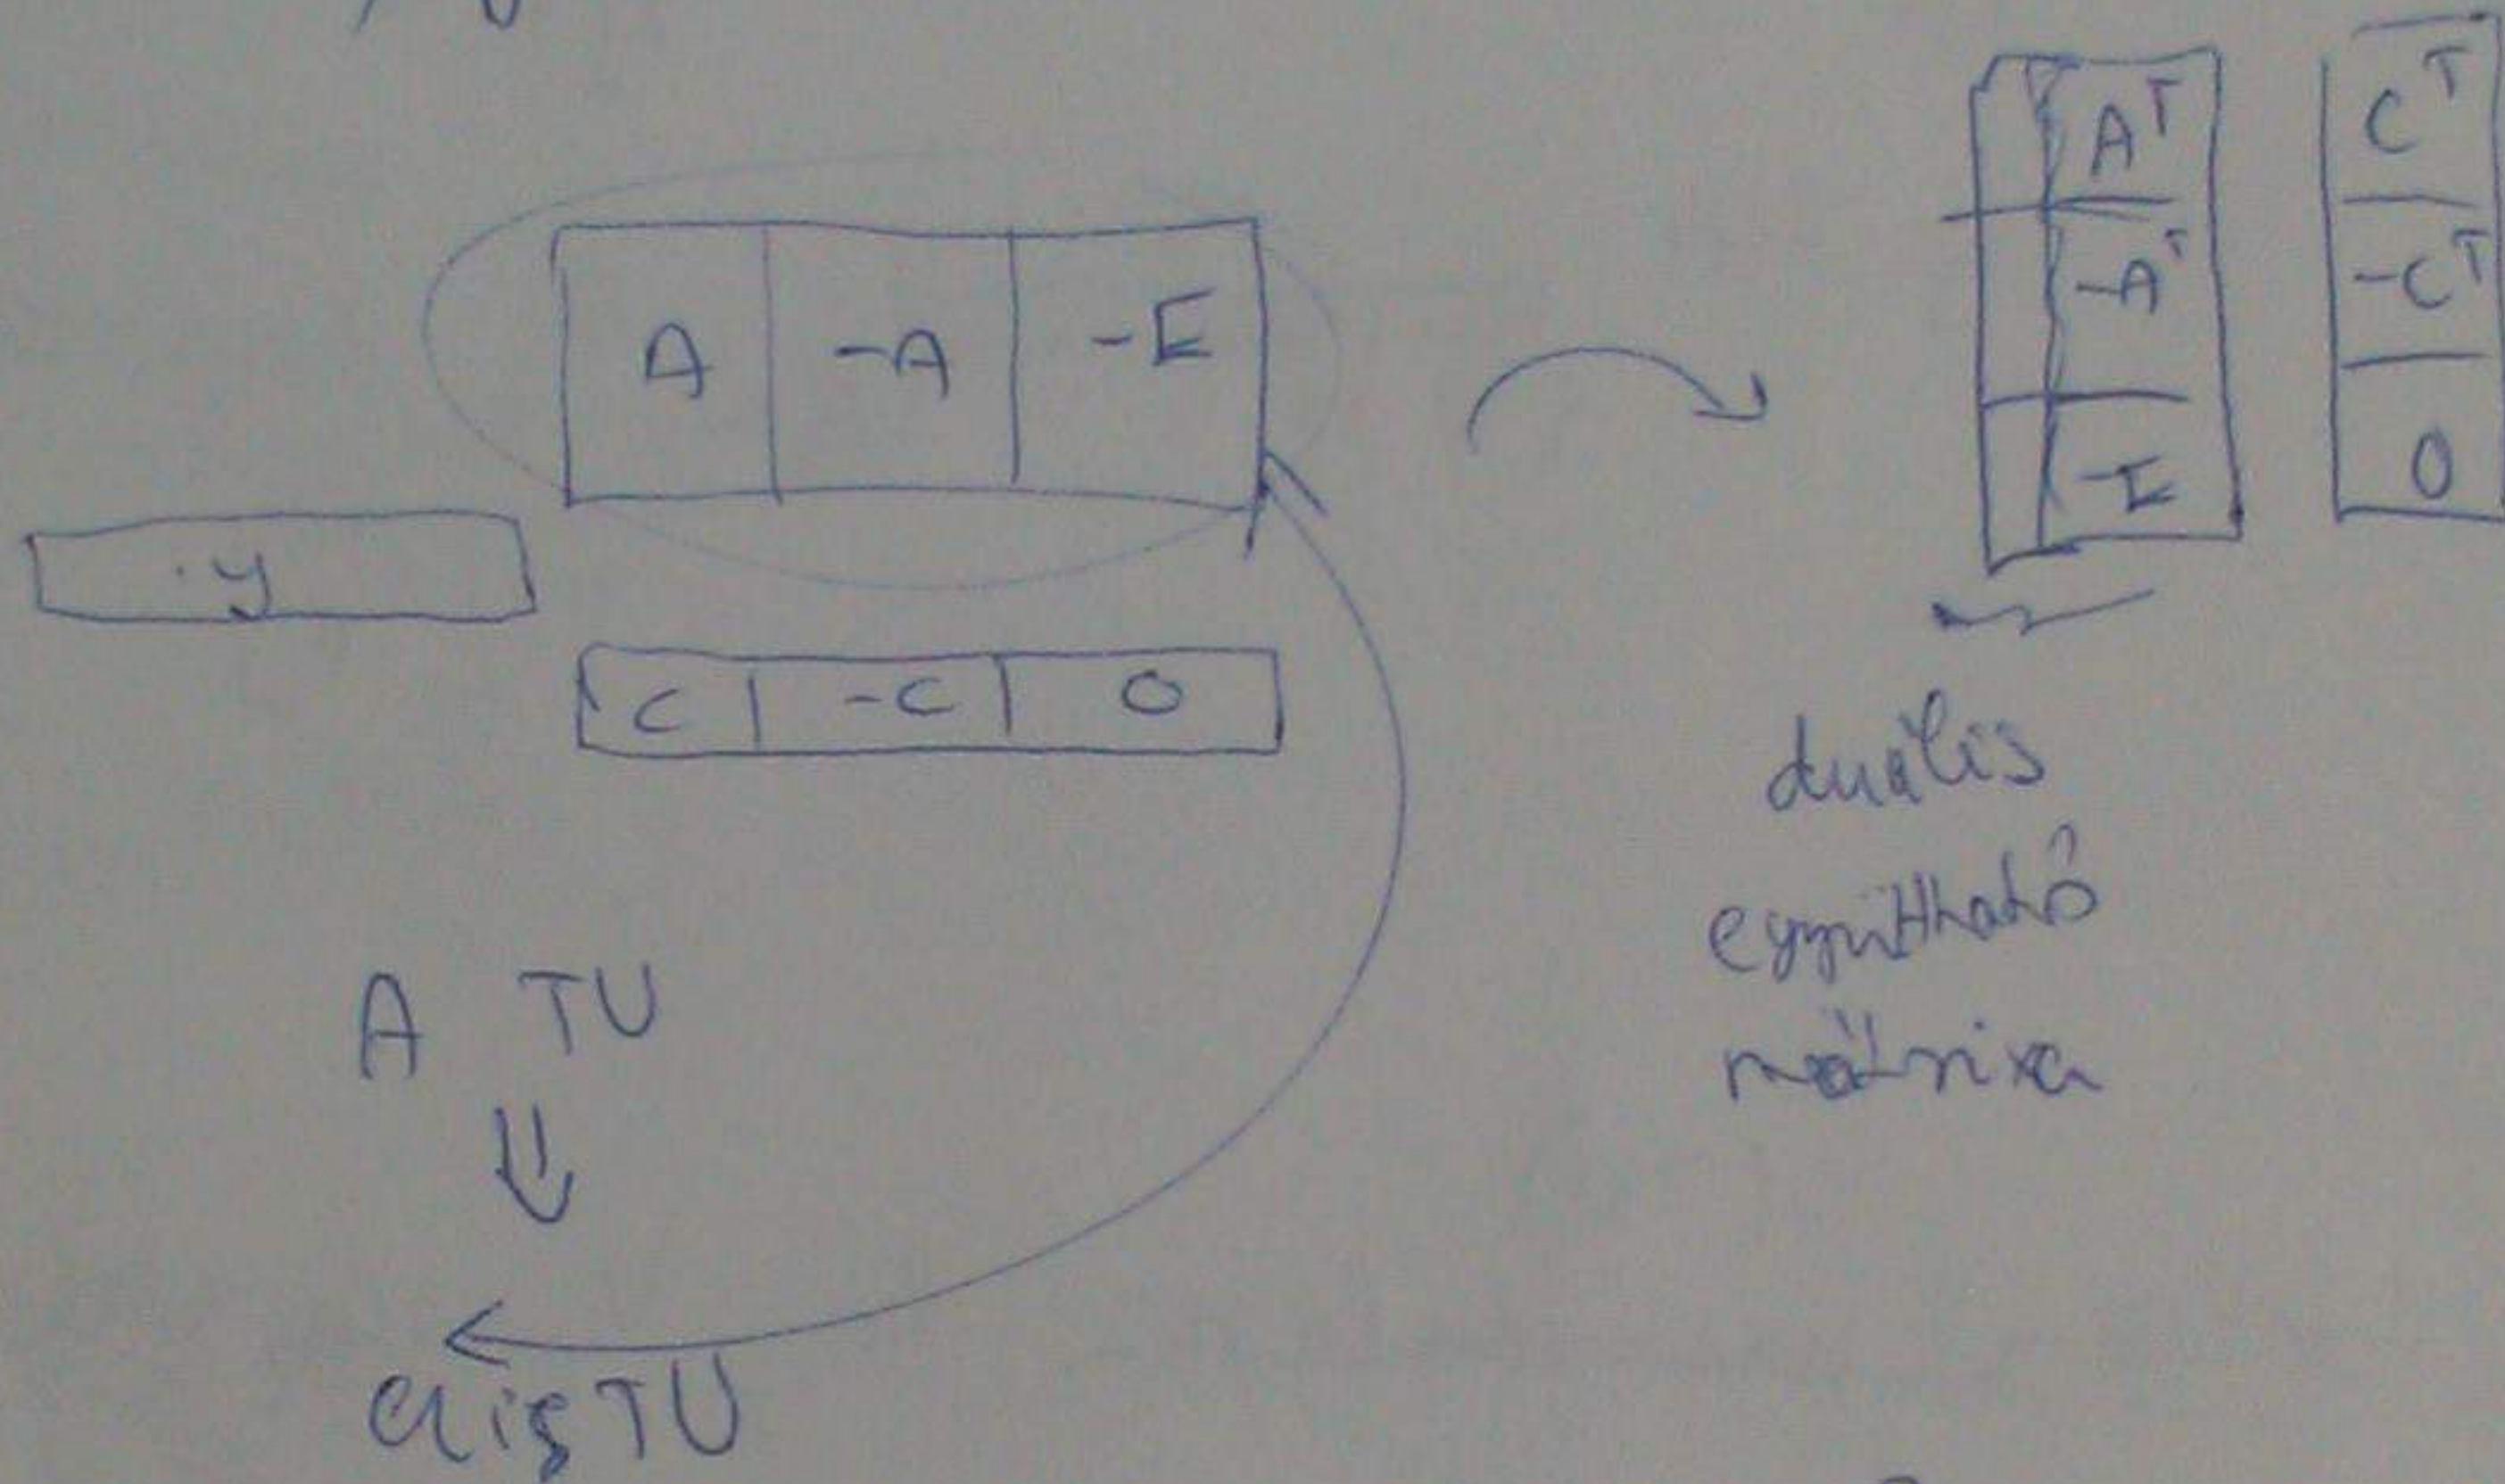 A | -A | -E
y
C | -C | 0
A^T C^T
-A^T -C^T
-E 0
duális
együttható
mátrixa
A TU
⇓
ez is TU